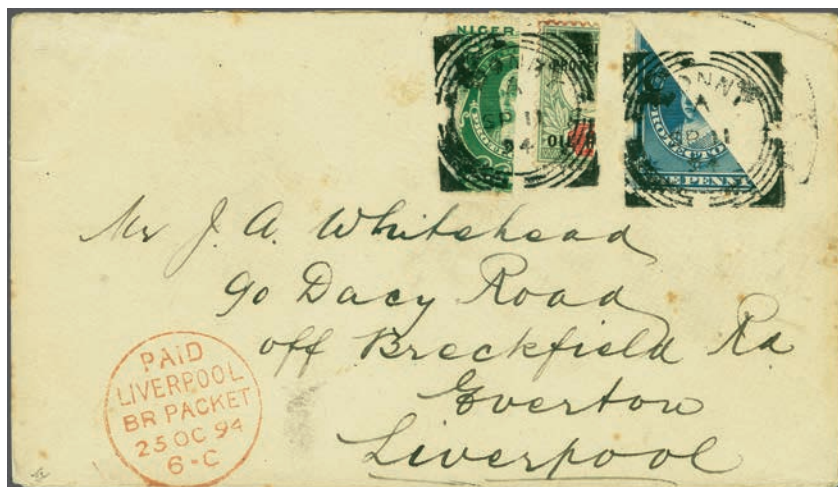 NIGER
BONNY
A
SP 11
94
OIL
BONNY
A
SP 11
94
PROTECTO
E PENN
Mr J. A. Whitehead
90 Dacy Road
off Breckfield Rd
Everton
Liverpool
PAID
LIVERPOOL
BR PACKET
25 OC 94
6-C